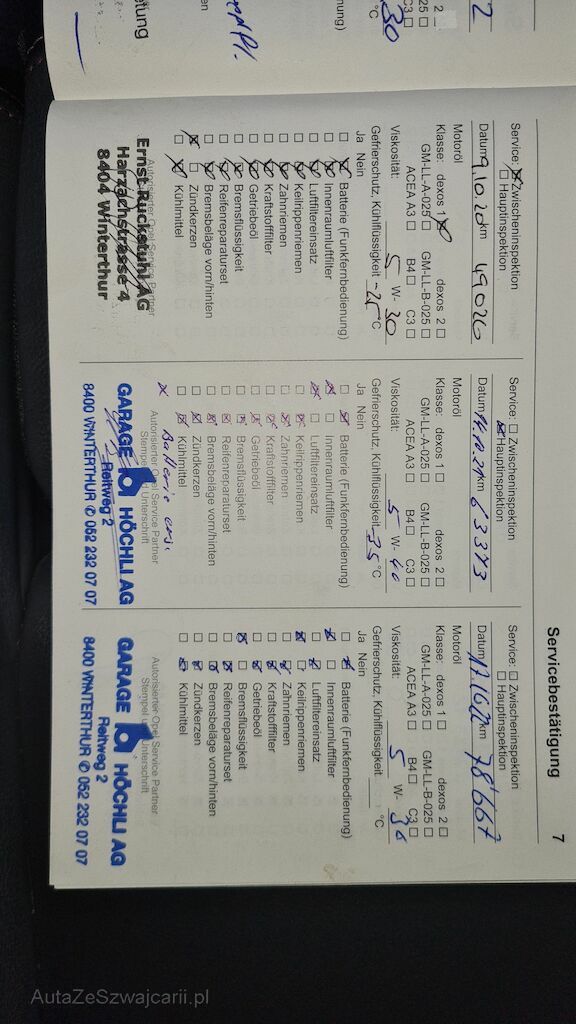 Servicebestätigung
7
Service: ☒ Zwischeninspektion
☐ Hauptinspektion
Datum 9.10.20 km 49026
Motoröl
Klasse: dexos 1 ☒ dexos 2 ☐
GM-LL-A-025 ☐ GM-LL-B-025 ☐
ACEA A3 ☐ B4 ☐ C3 ☐
Viskosität: 5 W- 30
Gefrierschutz, Kühlflüssigkeit -25 °C
Ja Nein
Batterie (Funkfernbedienung)
Innenraumluftfilter
Luftfiltereinsatz
Keilrippenriemen
Zahnriemen
Kraftstofffilter
Getriebeöl
Bremsflüssigkeit
Reifenreparaturset
Bremsbeläge vorn/hinten
Zündkerzen
Kühlmittel
Autorisierter Opel Service Partner
Ernst Ruckstuhl AG
Harzachstrasse 4
8404 Winterthur
Service: ☐ Zwischeninspektion
☒ Hauptinspektion
Datum 14.10.21 km 63373
Motoröl
Klasse: dexos 1 ☐ dexos 2 ☐
GM-LL-A-025 ☐ GM-LL-B-025 ☐
ACEA A3 ☐ B4 ☐ C3 ☐
Viskosität: 5 W- 40
Gefrierschutz, Kühlflüssigkeit -35 °C
Ja Nein
Batterie (Funkfernbedienung)
Innenraumluftfilter
Luftfiltereinsatz
Keilrippenriemen
Zahnriemen
Kraftstofffilter
Getriebeöl
Bremsflüssigkeit
Reifenreparaturset
Bremsbeläge vorn/hinten
Zündkerzen
Kühlmittel
x Batterie ers.
Autorisierter Opel Service Partner
Stempel und Unterschrift
GARAGE HÖCHLI AG
Reitweg 2
8400 WINTERTHUR ✆ 052 232 07 07
Service: ☐ Zwischeninspektion
☐ Hauptinspektion
Datum 17.10.22 km 78'667
Motoröl
Klasse: dexos 1 ☐ dexos 2 ☐
GM-LL-A-025 ☐ GM-LL-B-025 ☐
ACEA A3 ☐ B4 ☐ C3 ☐
Viskosität: 5 W- 30
Gefrierschutz, Kühlflüssigkeit °C
Ja Nein
Batterie (Funkfernbedienung)
Innenraumluftfilter
Luftfiltereinsatz
Keilrippenriemen
Zahnriemen
Kraftstofffilter
Getriebeöl
Bremsflüssigkeit
Reifenreparaturset
Bremsbeläge vorn/hinten
Zündkerzen
Kühlmittel
Autorisierter Opel Service Partner
Stempel und Unterschrift
GARAGE HÖCHLI AG
Reitweg 2
8400 WINTERTHUR ✆ 052 232 07 07
AutaZeSzwajcarii.pl